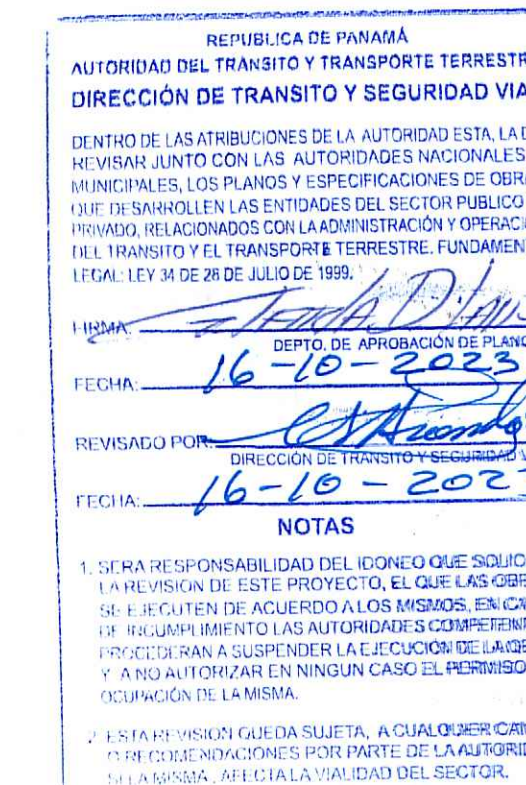 REPUBLICA DE PANAMÁ
AUTORIDAD DEL TRANSITO Y TRANSPORTE TERRESTR
DIRECCIÓN DE TRANSITO Y SEGURIDAD VIA
DENTRO DE LAS ATRIBUCIONES DE LA AUTORIDAD ESTA, LA D
REVISAR JUNTO CON LAS AUTORIDADES NACIONALES
MUNICIPALES, LOS PLANOS Y ESPECIFICACIONES DE OBR
QUE DESARROLLEN LAS ENTIDADES DEL SECTOR PUBLICO
PRIVADO, RELACIONADOS CON LA ADMINISTRACIÓN Y OPERACI
DEL TRANSITO Y EL TRANSPORTE TERRESTRE. FUNDAMEN
LEGAL: LEY 34 DE 28 DE JULIO DE 1999.
FIRMA:
DEPTO. DE APROBACIÓN DE PLANO
FECHA: 16-10-2023
REVISADO POR:
DIRECCIÓN DE TRANSITO Y SEGURIDAD V
FECHA: 16-10-202
NOTAS
1. SERA RESPONSABILIDAD DEL IDONEO QUE SOLICI
LA REVISION DE ESTE PROYECTO, EL QUE LAS OBR
SE EJECUTEN DE ACUERDO A LOS MISMOS, EN CA
DE INCUMPLIMIENTO LAS AUTORIDADES COMPETENT
PROCEDERAN A SUSPENDER LA EJECUCIÓN DE LA OB
Y A NO AUTORIZAR EN NINGUN CASO EL PERMISO
OCUPACIÓN DE LA MISMA.
2. ESTA REVISION QUEDA SUJETA, A CUALQUIER CAM
O RECOMENDACIONES POR PARTE DE LA AUTORID
SI LA MISMA, AFECTA LA VIALIDAD DEL SECTOR.